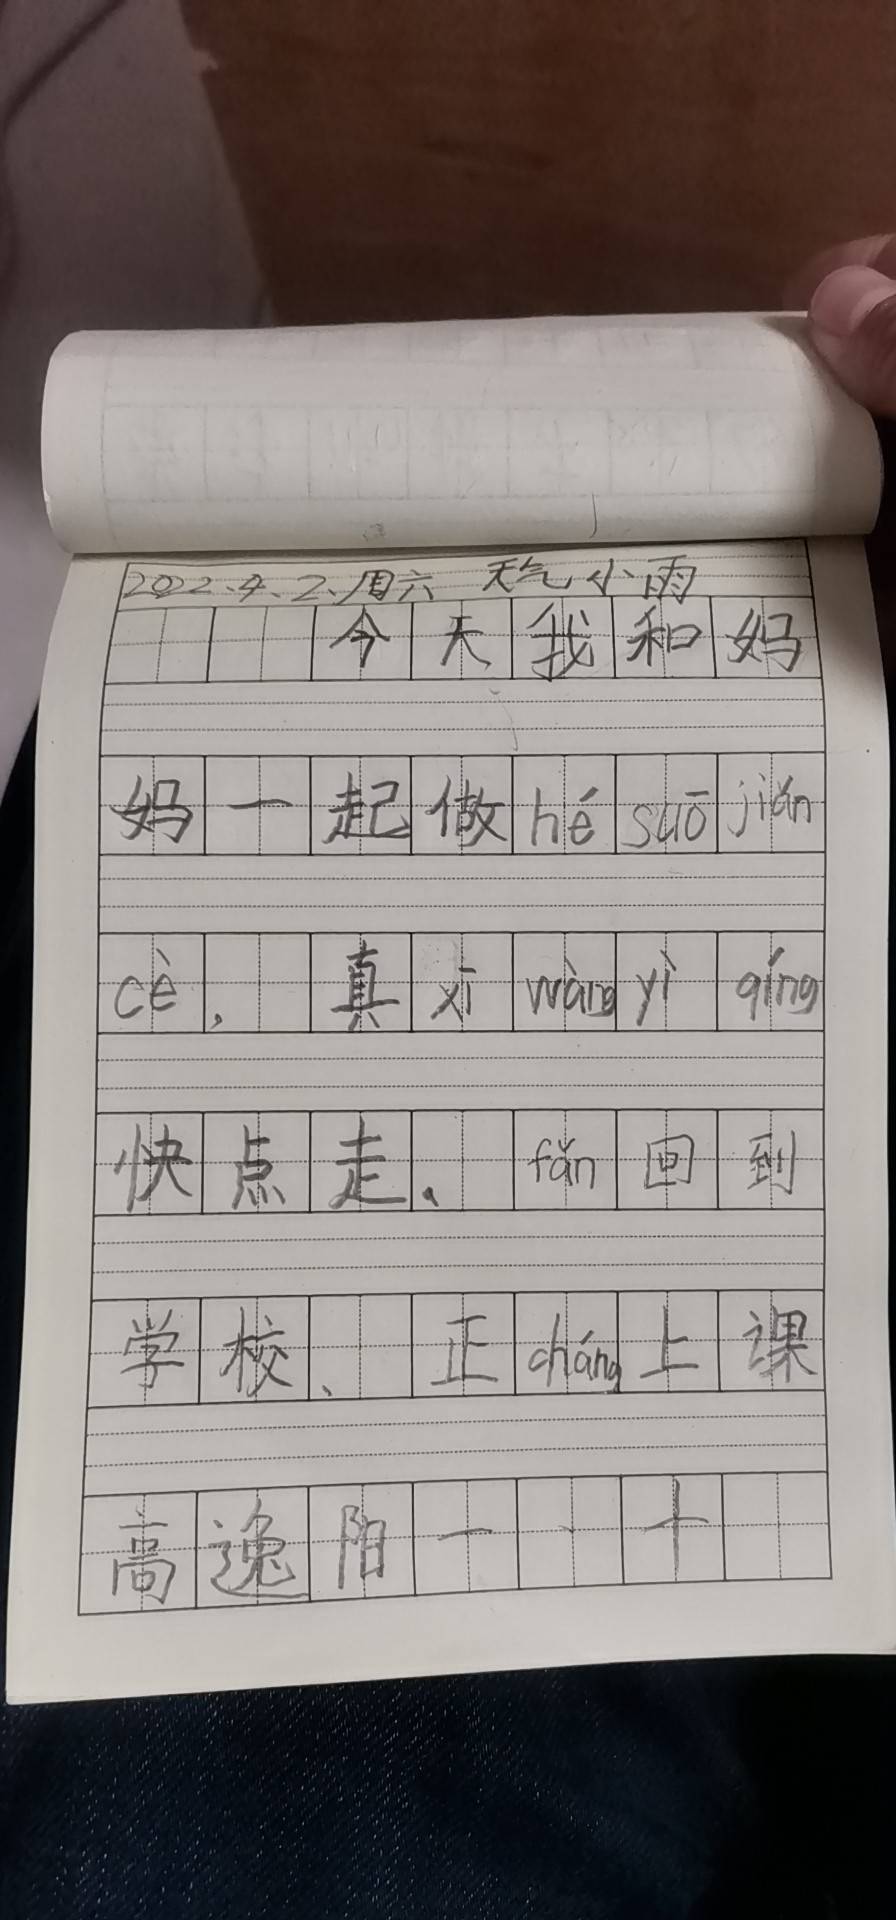 2022.4.2.周六 天气小雨
今天我和妈
妈一起做hé suō jiǎn
cè，真xī wàng yì qíng
快点走、fǎn回到
学校、正cháng上课
高逸阳一、十